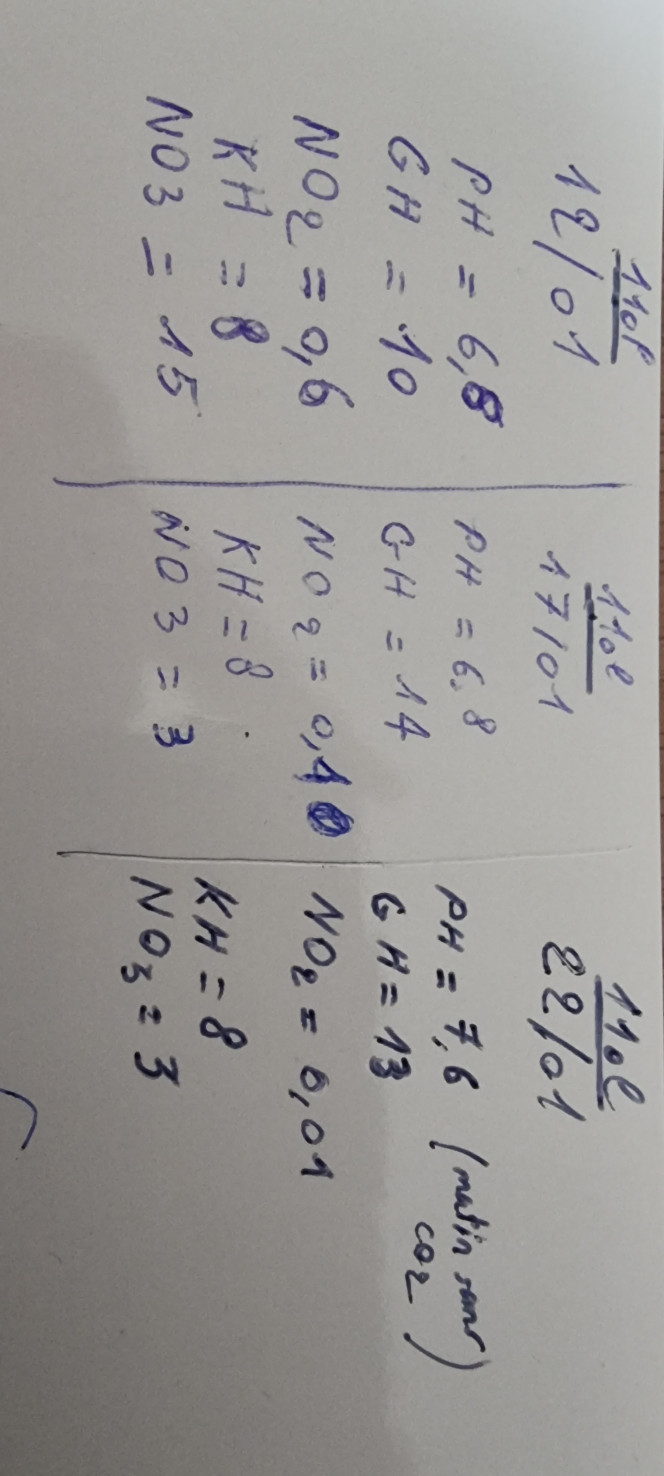 110l
12/01
PH = 6,8
GH = 10
NO2 = 0,6
KH = 8
NO3 = 15
110l
17/01
PH = 6,8
GH = 14
NO2 = 0,10
KH = 8
NO3 = 3
110l
22/01
PH = 7,6 (matin sans
CO2)
GH = 13
NO2 = 0,01
KH = 8
NO3 = 3